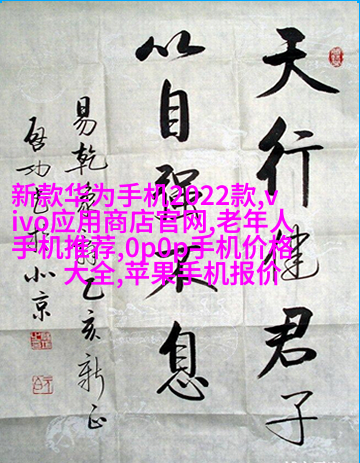 天行健君子
以自强不息
易乾象辞乙亥新正
启功书于北京
新款华为手机2022款,v
ivo应用商店官网,老年人
手机推荐,0p0p手机价格
大全,苹果手机报价